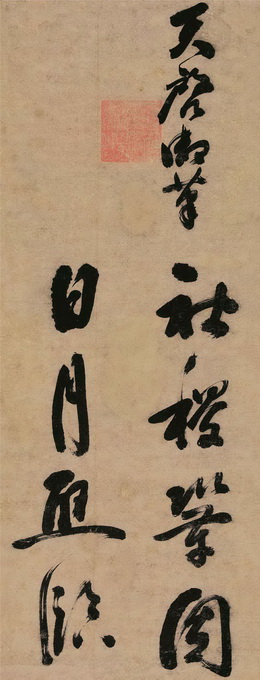 天啓御筆
社稷鞏固
日月照臨